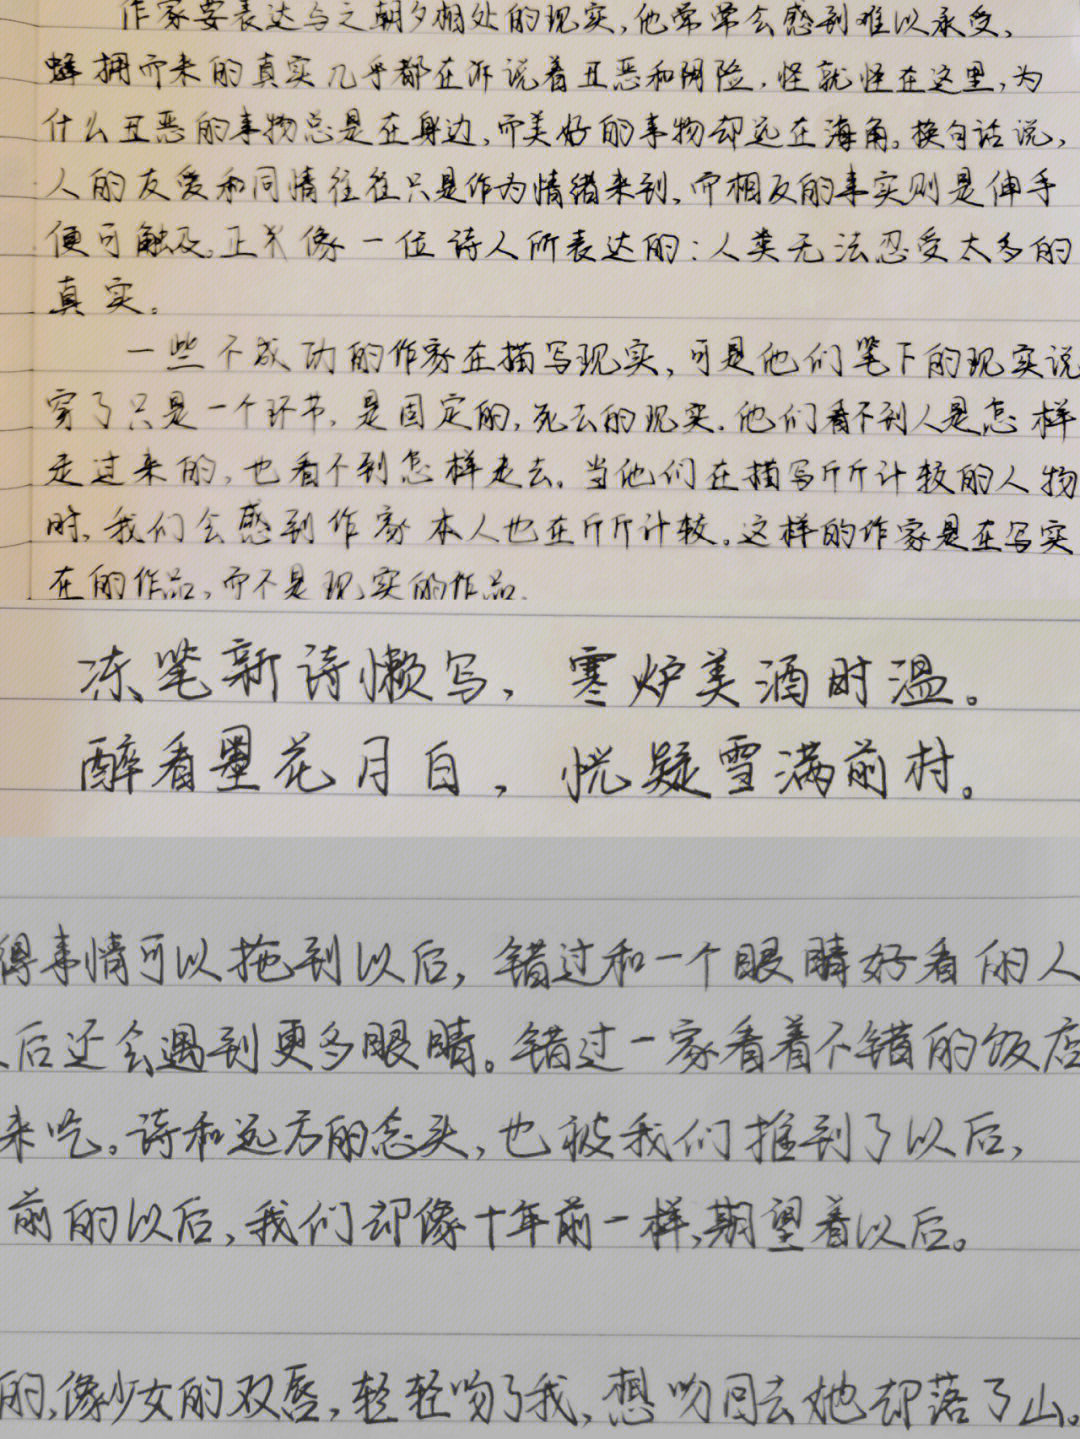 作家要表达与之朝夕相处的现实,他常常会感到难以承受,
蜂拥而来的真实几乎都在诉说着丑恶和阴险,怪就怪在这里,为
什么丑恶的事物总是在身边,而美好的事物却远在海角。换句话说,
人的友爱和同情往往只是作为情绪来到,而相反的事实则是伸手
便可触及。正像一位诗人所表达的:人类无法忍受太多的
真实。
一些不成功的作家在描写现实,可是他们笔下的现实说
穿了只是一个环节,是固定的,死去的现实。他们看不到人是怎样
走过来的,也看不到怎样走去。当他们在描写斤斤计较的人物
时,我们会感到作家本人也在斤斤计较。这样的作家是在写实
在的作品,而不是现实的作品。
冻笔新诗懒写,寒炉美酒时温。
醉看墨花月白,恍疑雪满前村。
得事情可以拖到以后,错过和一个眼睛好看的人
后还会遇到更多眼睛。错过一家看着不错的饭店
来吃。诗和远方的念头,也被我们推到了以后,
前的以后,我们却像十年前一样,期望着以后。
的,像少女的双唇,轻轻吻了我,想吻回去她却落了山。